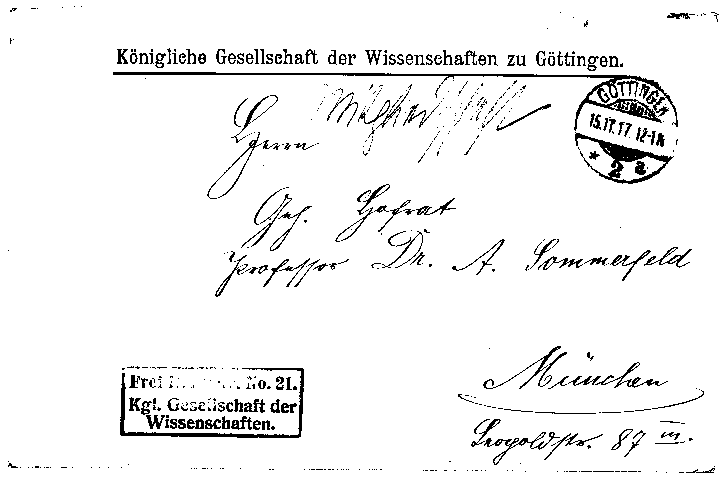 Königliche Gesellschaft der Wissenschaften zu Göttingen.
Mitgliedschaft
GÖTTINGEN
15.IV.17. 12-1N
* 2 a
Herrn
Geh. Hofrat
Professor Dr. A. Sommerfeld
München
Leopoldstr. 87 III.
Frei No. 21.
Kgl. Gesellschaft der
Wissenschaften.